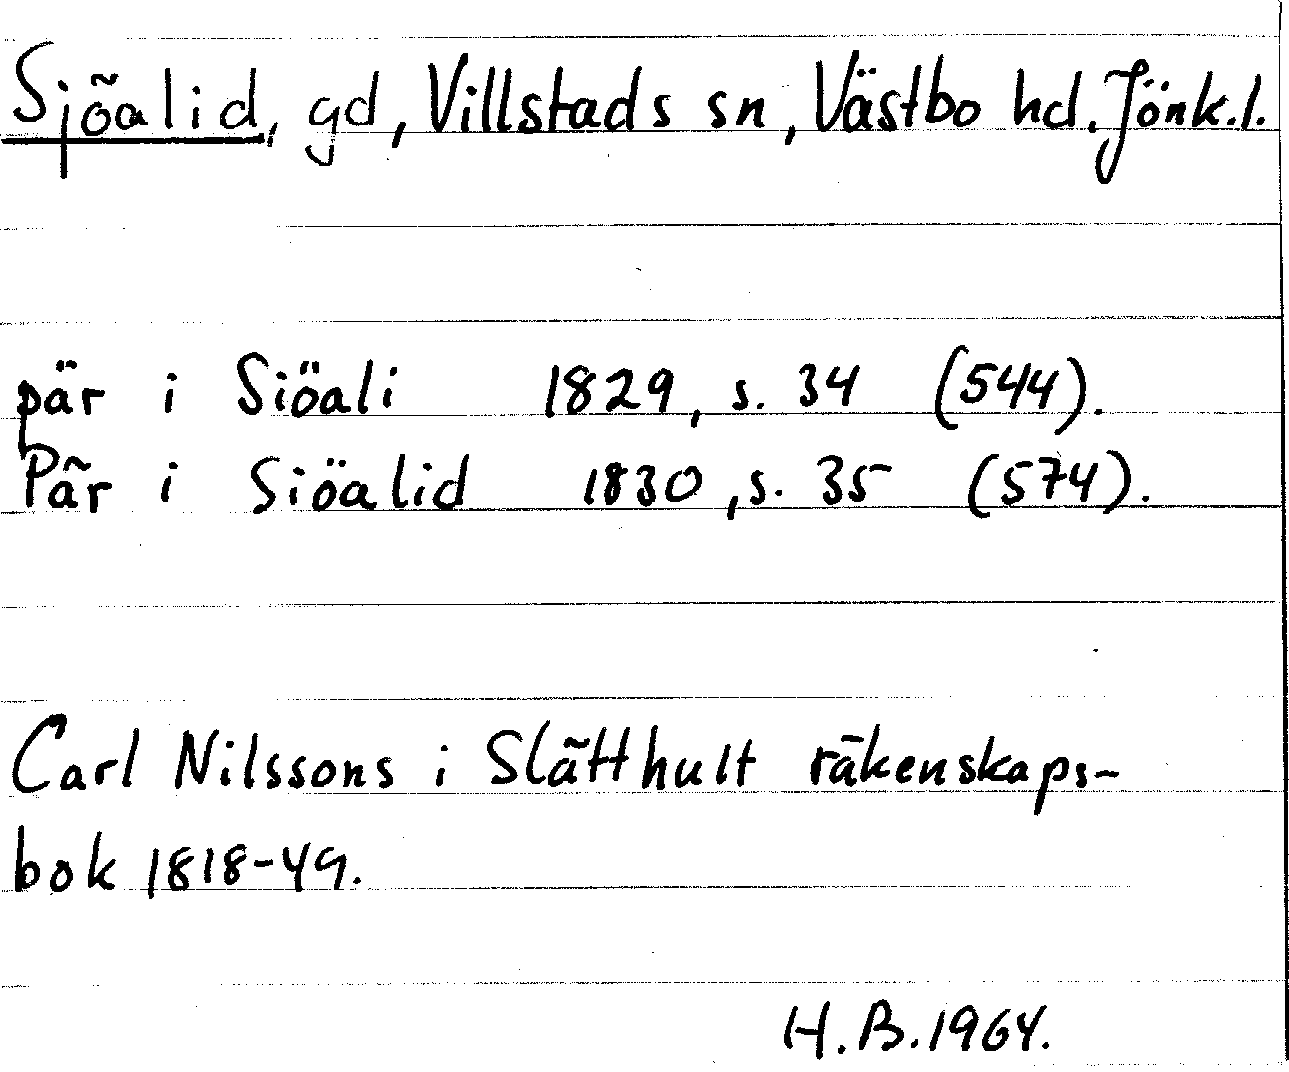 Sjöalid, gd, Villstads sn, Västbo hd. Jönk.l.
pär i Siöali 1829, s. 34 (544).
Pär i Siöalid 1830, s. 35 (574).
Carl Nilssons i Slätthult räkenskaps-
bok 1818-49.
H.B.1964.